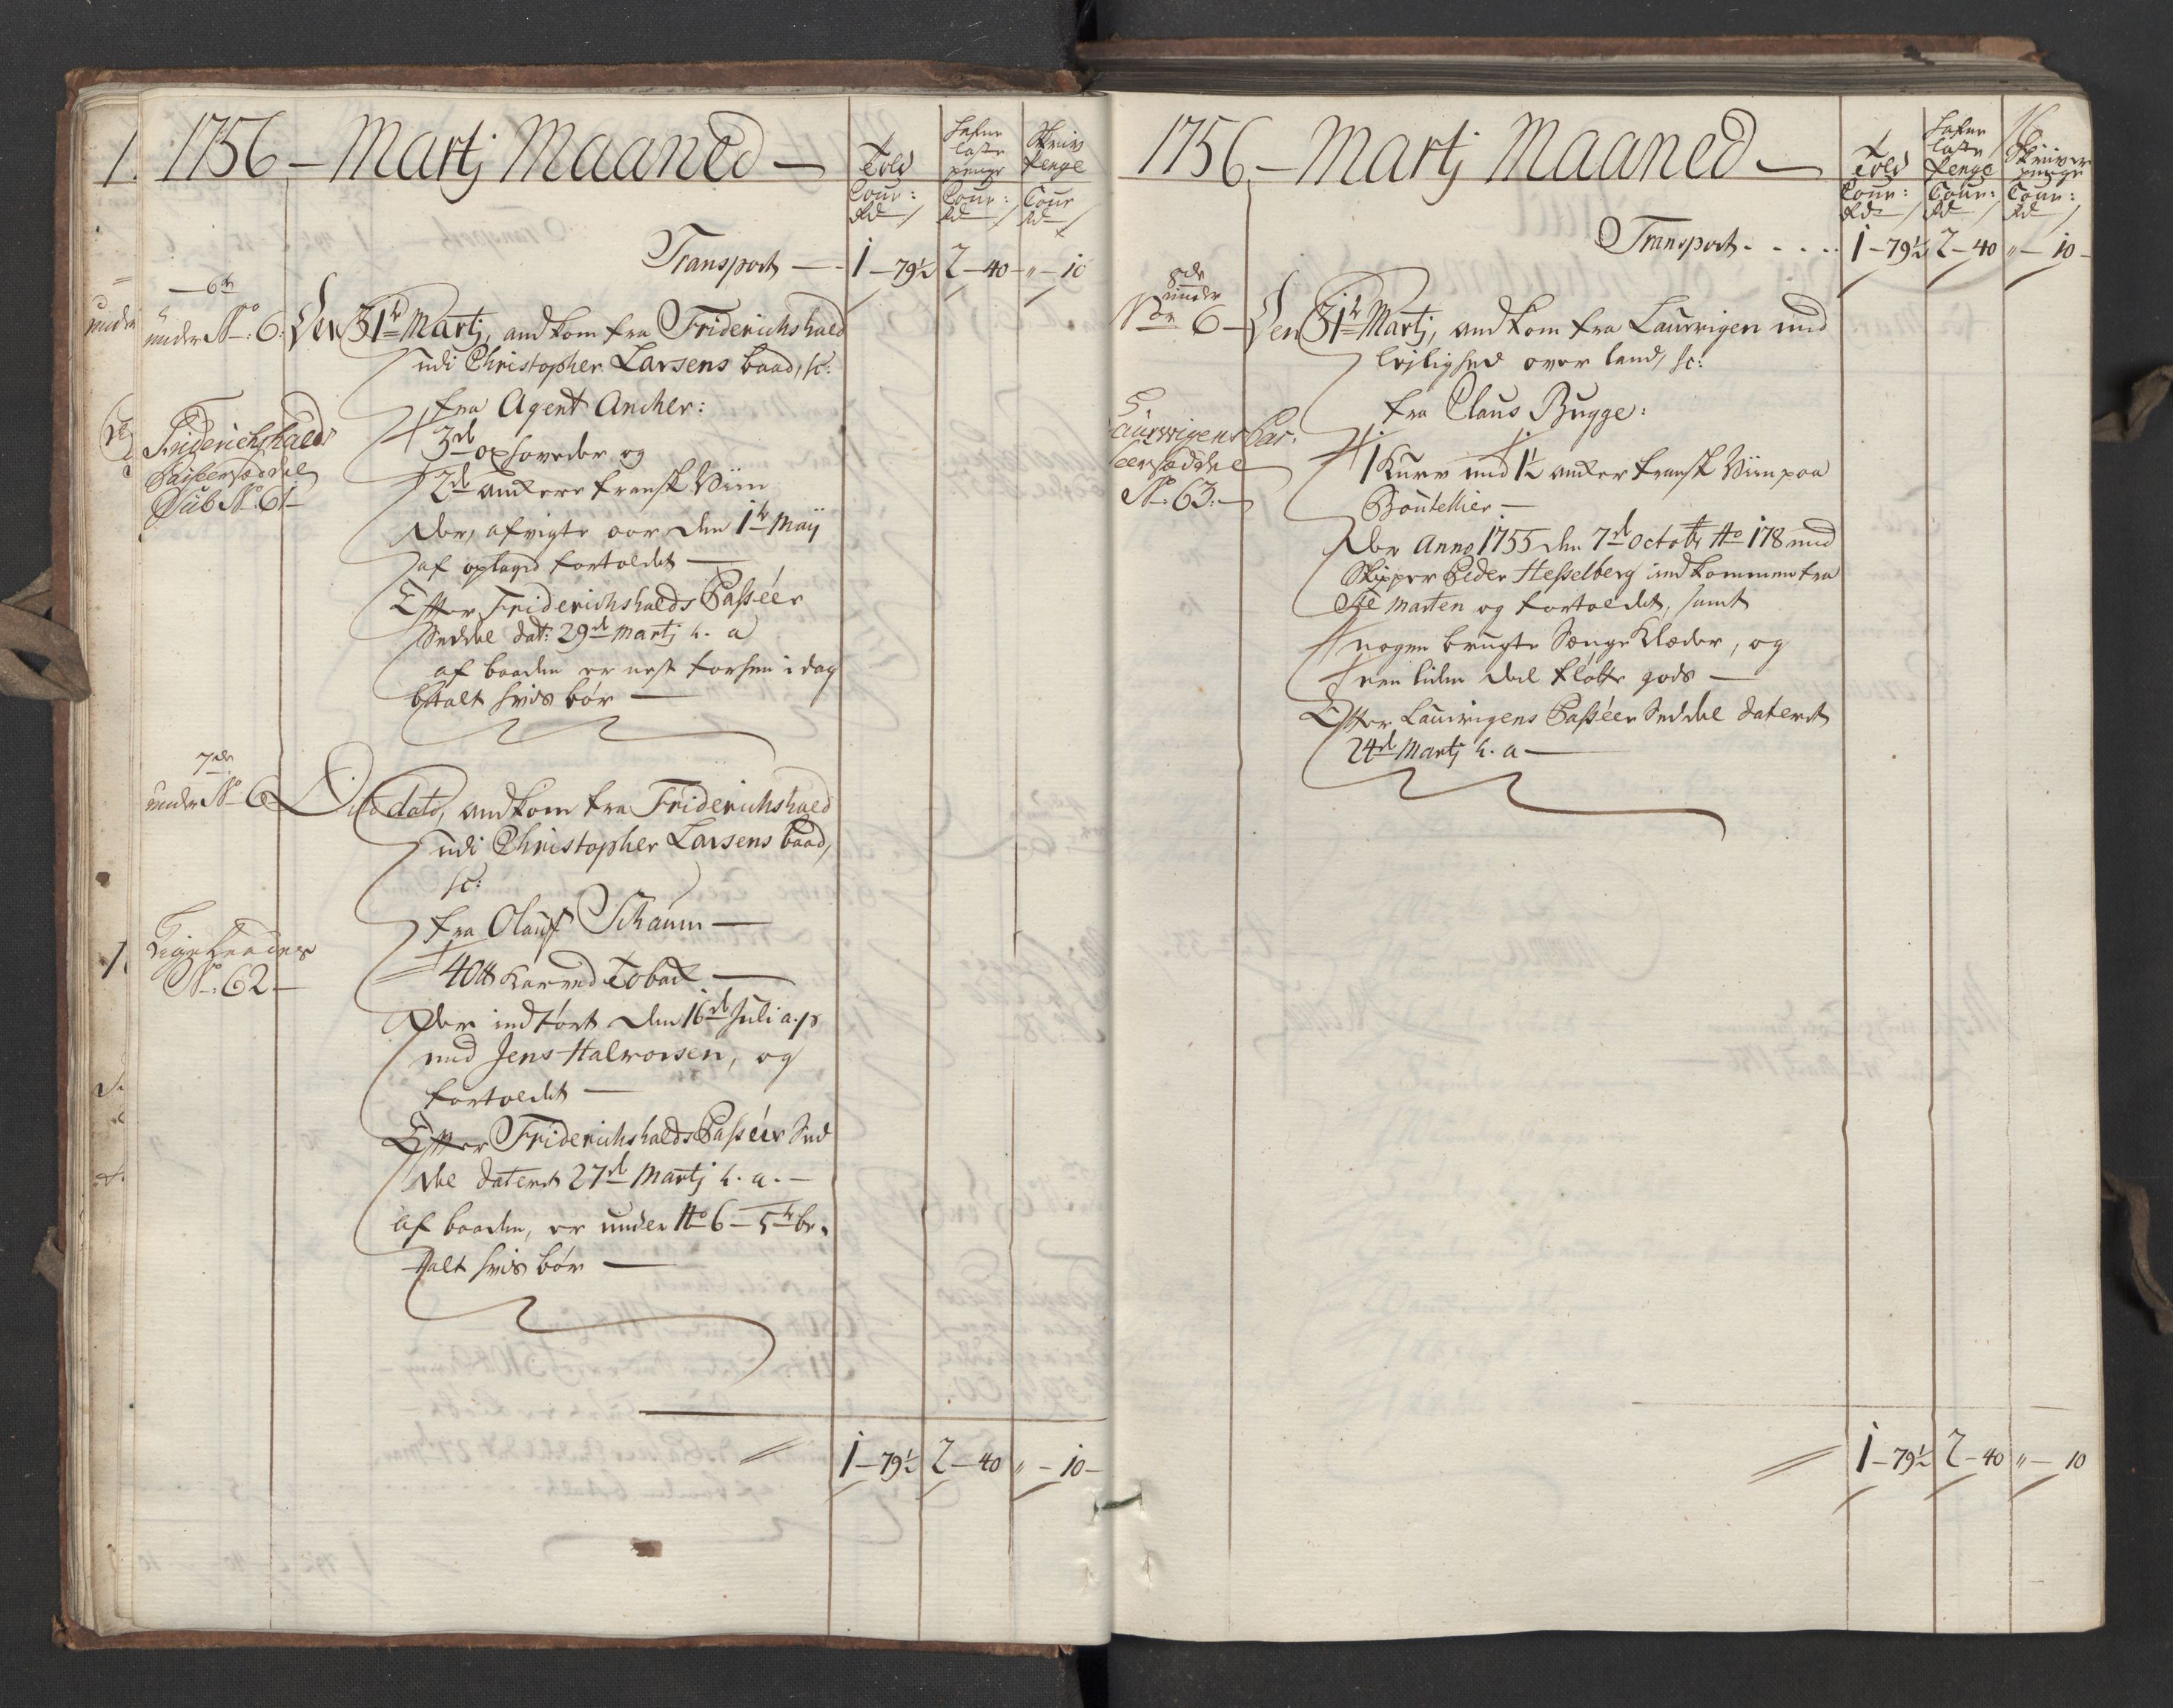 1756 – Martj Maaned –
Told
Cour:
Rd
Hafne
laste
penge
Cour:
Rd
Skriver
Penge
Cour
Rd
Transport — 1–79½ 2–40 „–10
6te
under No 6.
Den 31te Martj, andkom fra Friderichshald
udi Christopher Larsens baad, sc:
fra Agent Ancher:
Friderichshalds
Passeersæddel
Sub No 61–
3de oxhoveder og
2de ankere fransk Viin
der, afvigte aar den 1te Maij
af oplaget fortoldet —
Efter Friderichshalds Passéer
Seddel dat: 29de Martj h. a
af baaden er nest forhen i dag
betalt hvis bør —
7de
under No 6
Dito dato, andkom fra Friderichshald
udi Christopher Larsens baad,
sc:
fra Olauf Schaum —
No 62 –
40 lb Karved Tobak —
der indført den 16de Juli a. p
med Jens Halvorsen, og
fortoldet —
Efter Friderichshalds Passéer Sed
del dateret 27de Martj h. a. –
af baaden, er under No 6 – 5te be,
talt hvis bør —
1–79½ 2–40 „–10–
1756 – Martj Maaned –
Told
Cour:
Rd
Hafne
laste
Penge
Cour:
Rd
16
Skriver
penge
Cour:
Rd
Transport . . . . . 1–79½ 2–40 „–10–
8de
under
No 6 –
Den 31te Martj, andkom fra Laurvigen med
lejlighed over land, sc:
fra Claus Bugge:
Laurvigens Pas-
seersæddel
No 63. –
1 Kurv med 1½ anker fransk Viin paa
Boutellier –
der Anno 1755 den 7de Octobr No 178 med
Skipper Peder Hesselberg indkommen fra
Ste Marten og fortoldet, samt
nogen brugte Sænge Klæder, og
een liden deel fløtte gods —
Efter Laurvigens Passéer Seddel dateret
24de Martj h. a —
1–79½ 2–40 „–10